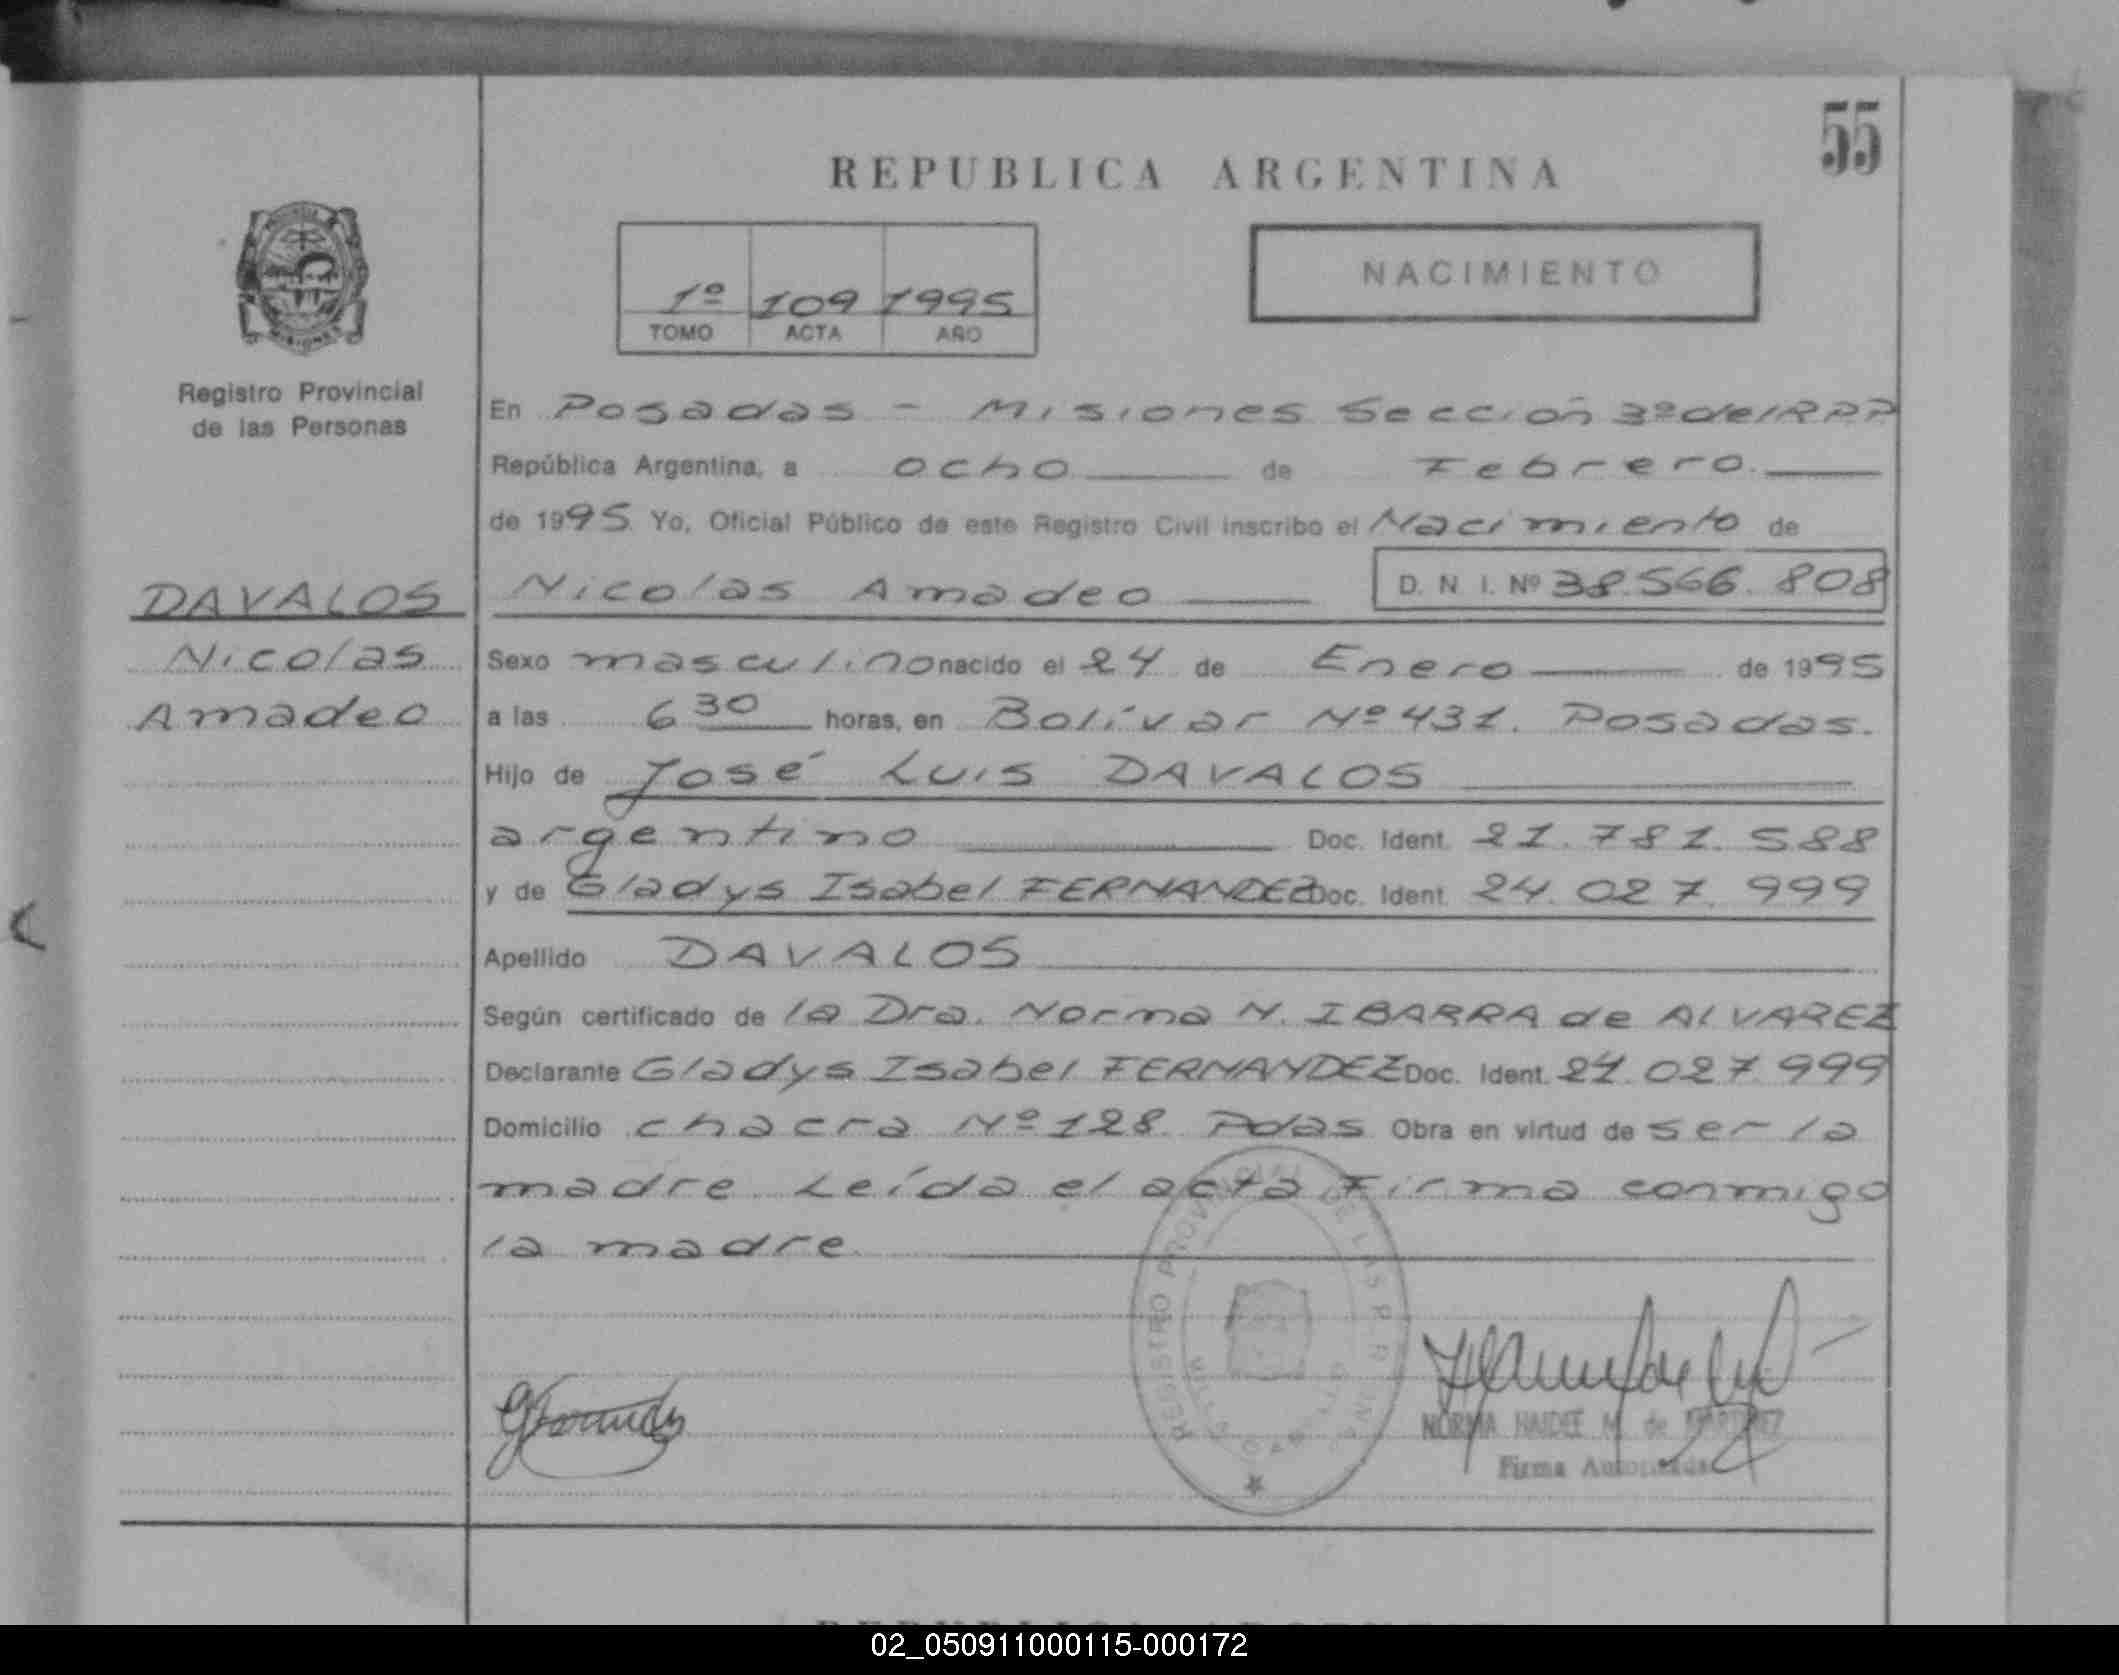 55
REPUBLICA ARGENTINA
1º 109 1995
TOMO ACTA AÑO
NACIMIENTO
MISIONES
Registro Provincial
de las Personas
En Posadas - Misiones Sección 3º del RPP
República Argentina, a ocho de Febrero.
de 1995 Yo, Oficial Público de este Registro Civil inscribo el Nacimiento de
DAVALOS
Nicolas
Amadeo
Nicolas Amadeo D. N. I. Nº 38.566.808
Sexo masculino nacido el 24 de Enero de 1995
a las 6 30 horas, en Bolívar Nº 431. Posadas.
Hijo de José Luis DAVALOS
argentino Doc. Ident. 21.781.588
y de Gladys Isabel FERNANDEZ Doc. Ident. 24.027.999
Apellido DAVALOS
Según certificado de la Dra. Norma N. IBARRA de ALVAREZ
Declarante Gladys Isabel FERNANDEZ Doc. Ident. 24.027.999
Domicilio chacra Nº 128 Pdas Obra en virtud de ser la
madre Leída el acta firma conmigo
la madre
REGISTRO PROVINCIAL DE LAS PERSONAS
NORMA HAIDEE M. de MARTINEZ
Firma Autorizada
02_050911000115-000172